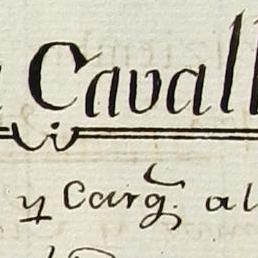 Cavall
y Carg. al